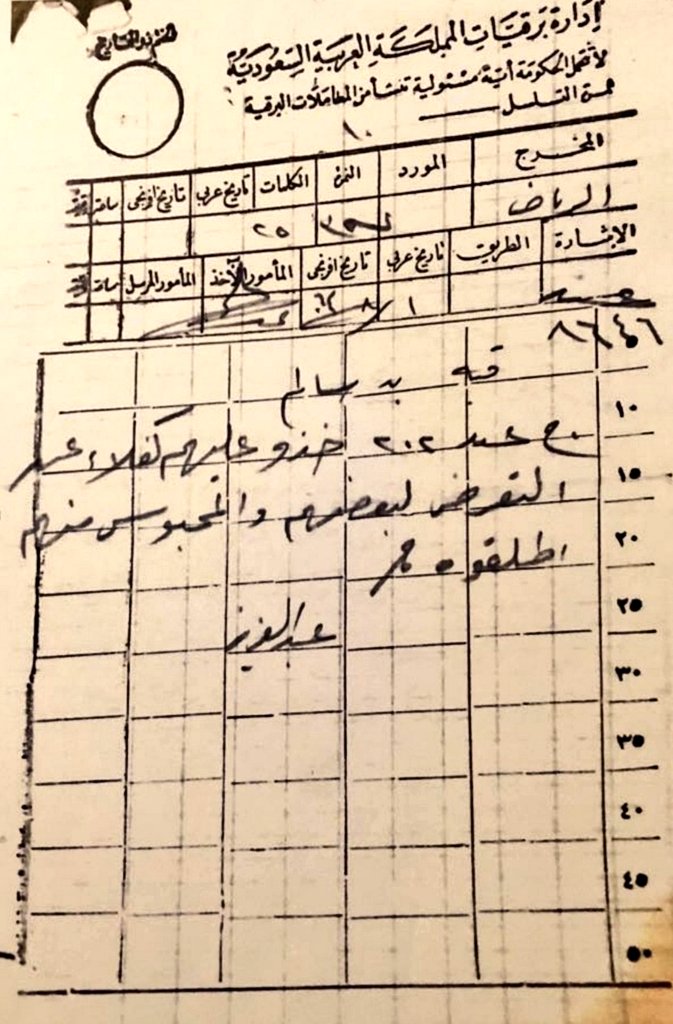 إدارة برقيات المملكة العربية السعودية
لا تتحمل الحكومة أية مسئولية تنشأ من المعاملات البرقية
نمرة التسلسل
١٠
المخرج المورد النمرة الكلمات تاريخ عربي تاريخ افرنجي ساعة
الرياض ٢٥
الإشارة الطريق تاريخ عربي تاريخ افرنجي المأمور الآخذ المأمور المرسل ساعة
١ / ٨
بن سالم
ج عدد ٢٠٢ خذو عليهم كفلاء عن
التعرض لبعضهم والمحبوس منهم
اطلقوه
عبدالعزيز
١٠
١٥
٢٠
٢٥
٣٠
٣٥
٤٠
٤٥
٥٠